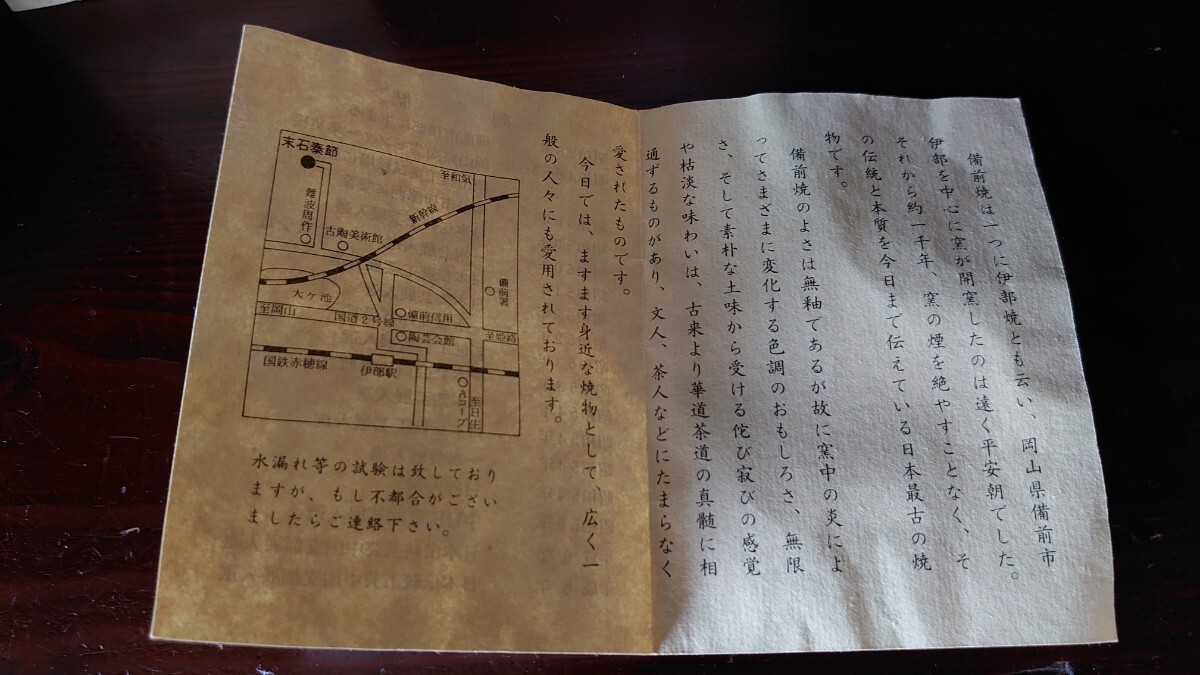 備前焼は一つに伊部焼とも云い、岡山県備前市
伊部を中心に窯が開窯したのは遠く平安朝でした。
それから約一千年、窯の煙を絶やすことなく、そ
の伝統と本質を今日まで伝えている日本最古の焼
物です。
備前焼のよさは無釉であるが故に窯中の炎によ
ってさまざまに変化する色調のおもしろさ、無限
さ、そして素朴な土味から受ける侘び寂びの感覚
や枯淡な味わいは、古来より華道茶道の真髄に相
通ずるものがあり、文人、茶人などにたまらなく
愛されたものです。
今日では、ますます身近な焼物として、広く一
般の人々にも愛用されております。
末石泰節
難波周作
古陶美術館
至和気
新幹線
備前署
大ヶ池
至岡山
国道2号線
備前信用
陶芸会館
至姫路
国鉄赤穂線
伊部駅
Aコープ
至日生
水漏れ等の試験は致しており
ますが、もし不都合がござい
ましたらご連絡下さい。